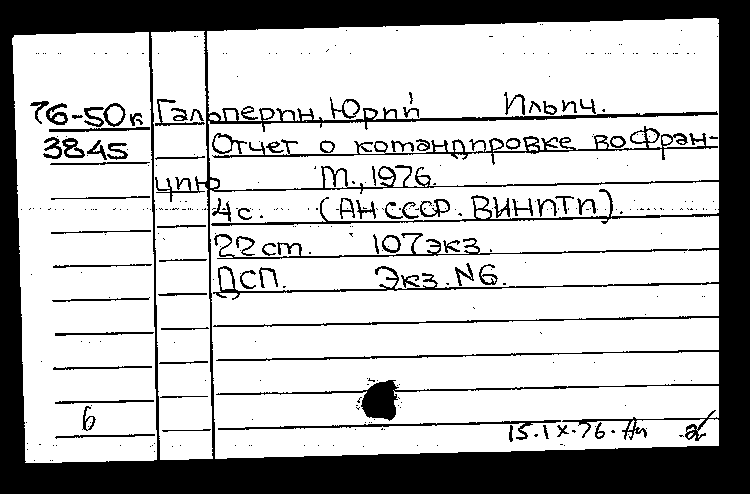 76-50к Гальперин, Юрий Ильич.
3845 Отчет о командировке во Фран-
цию М., 1976.
4 с. (АН СССР. ВИНИТИ).
22 ст. 107 экз.
ДСП. Экз. N6.
б
15.IX.76.